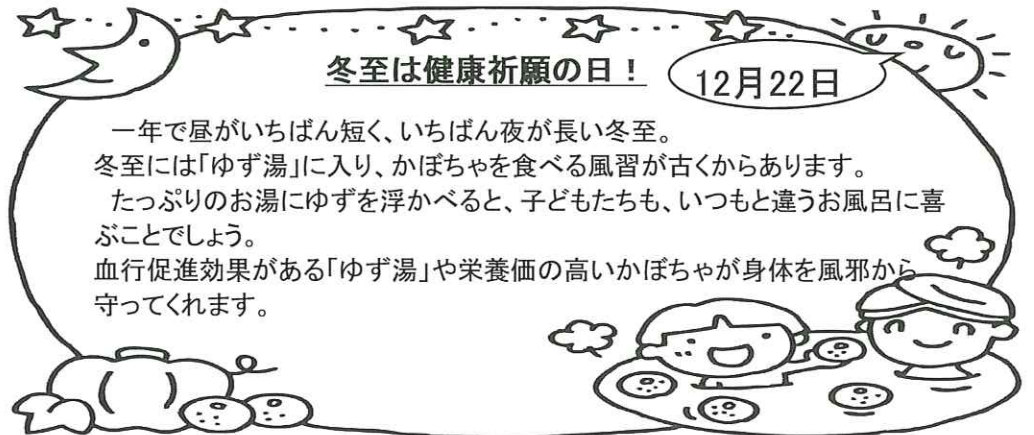 冬至は健康祈願の日！
12月22日
一年で昼がいちばん短く、いちばん夜が長い冬至。
冬至には「ゆず湯」に入り、かぼちゃを食べる風習が古くからあります。
たっぷりのお湯にゆずを浮かべると、子どもたちも、いつもと違うお風呂に喜
ぶことでしょう。
血行促進効果がある「ゆず湯」や栄養価の高いかぼちゃが身体を風邪から
守ってくれます。